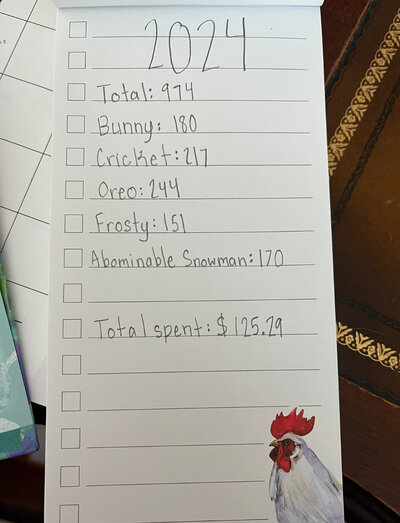 2024
Total: 974
Bunny: 180
Cricket: 217
Oreo: 244
Frosty: 151
Abominable Snowman: 170
Total spent: $125.29